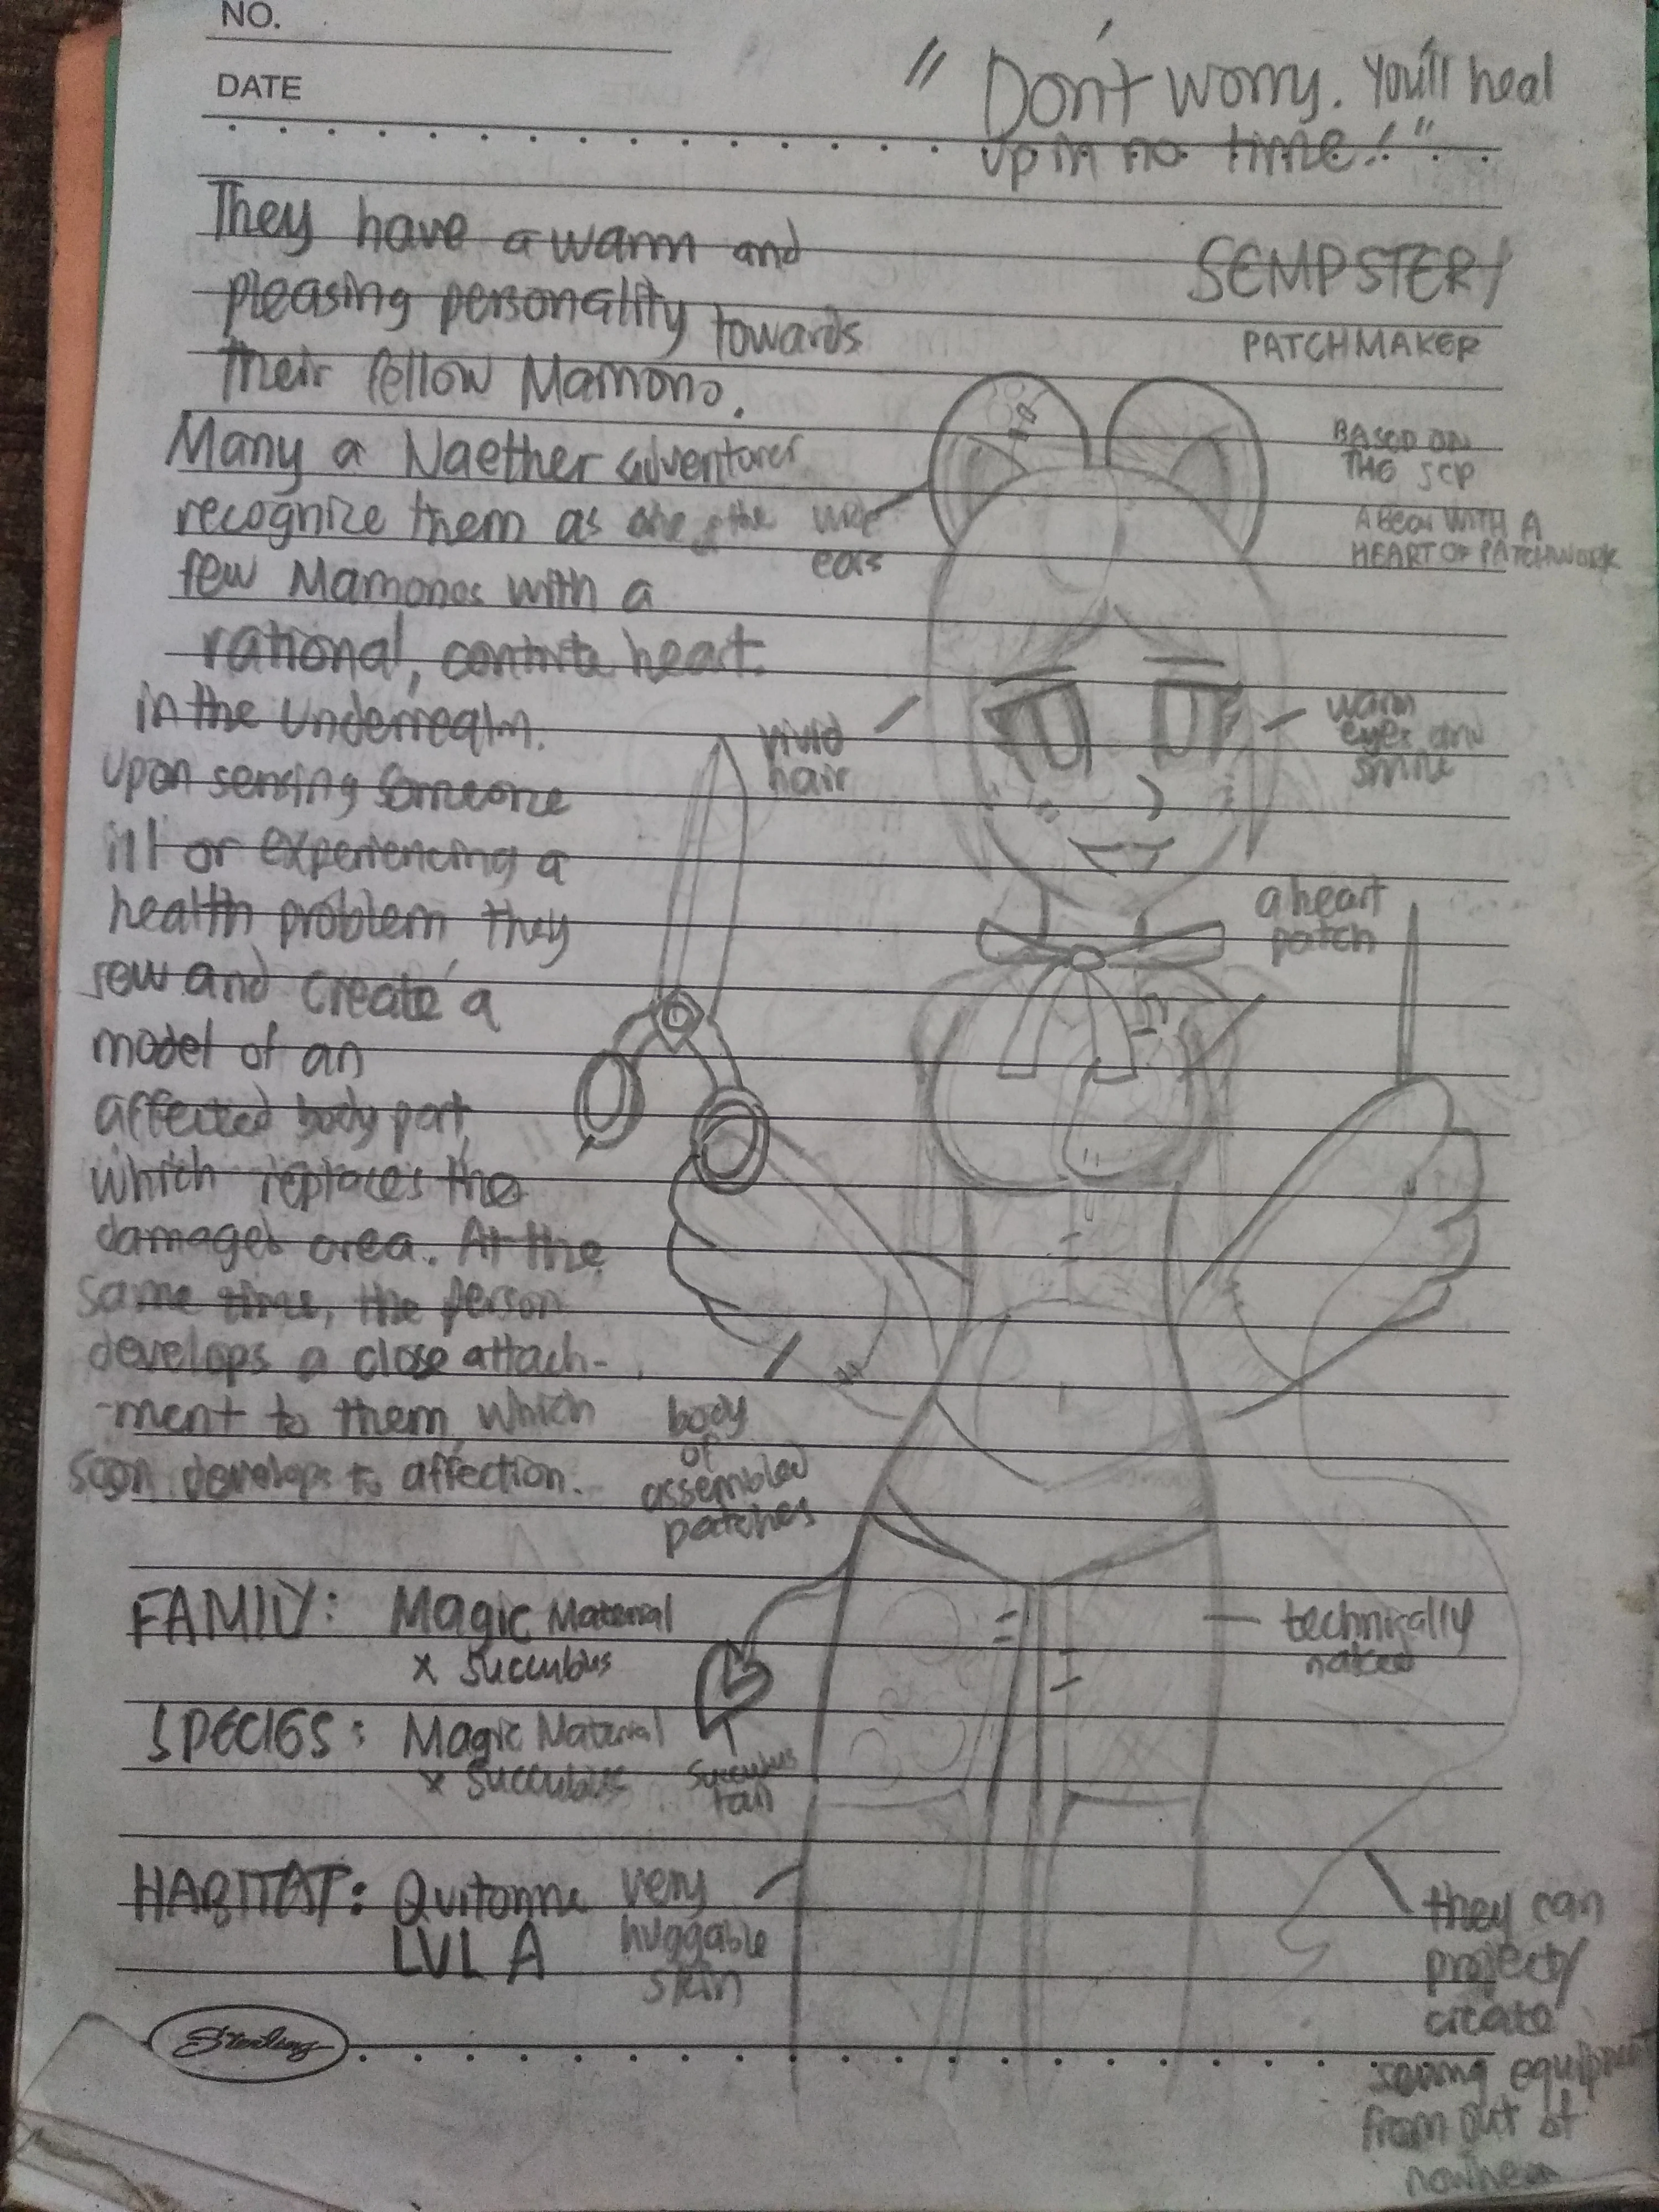 NO.
DATE
" Don't worry. You'll heal
up in no time! "
SEMPSTER/
PATCHMAKER
BASED ON
THE SCP
A BEAR WITH A
HEART OF PATCHWORK
They have a warm and
pleasing personality towards
their fellow Mamono.
Many a Naether adventurer
recognize them as one of the
few Mamonos with a
rational, contrite heart.
in the Underrealm.
Upon sensing someone
ill or experiencing a
health problem they
sew and create a
model of an
affected body part,
which replaces the
damaged area. At the
same time, the person
develops a close attach-
-ment to them, which
soon develops to affection.
ears
vivid
hair
warm
eyes and
smile
a heart
patch
body
of
assembled
patches
FAMILY: Magic Material
x Succubus
SPECIES: Magic Material
x Succubus
succubus
tail
technically
naked
HABITAT: Quitonne
LVL A
very
huggable
skin
they can
project/
create
sewing equipment
from out of
nowhere
Sterling